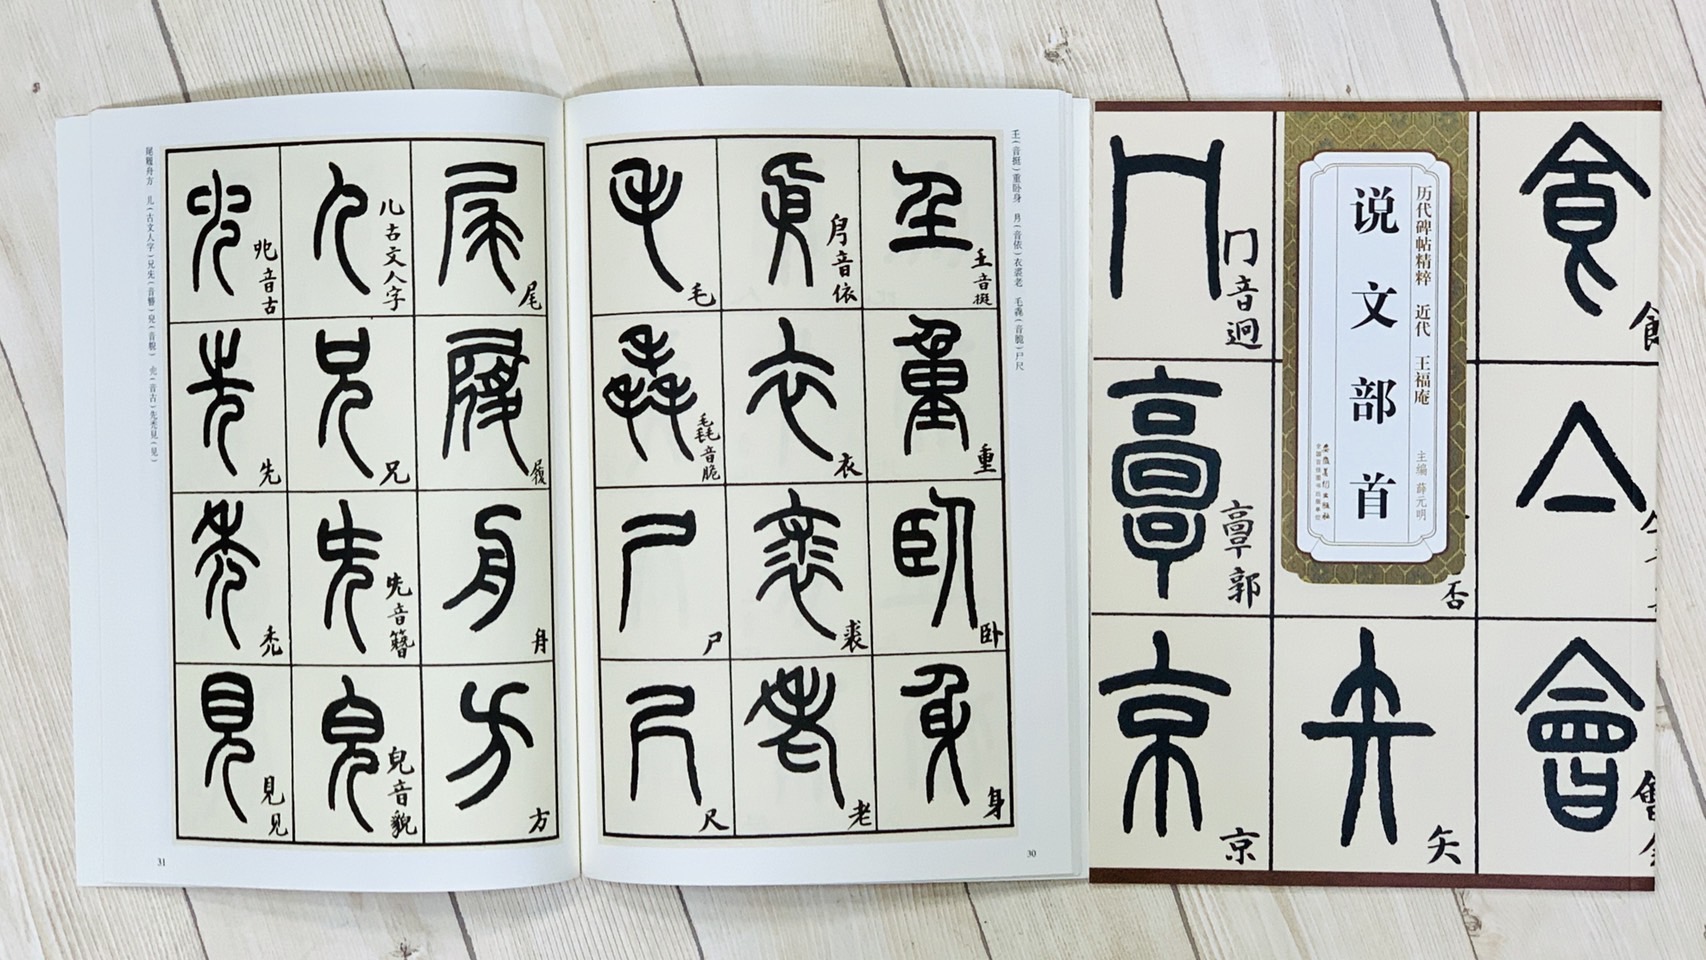 壬(音挺)重卧身　㐆(音依)衣裘老　毛毳(音脆)尸尺
𡈼音挺
重
卧
身
㐆音依
衣
裘
老
毛
毳音脆
尸
尺
30
尾
履
舟
方
儿古文人字
兄
兂音簪
皃音貌
𠑹音古
先
禿
見見
尾履舟方　儿(古文人字)兄兂(音簪)皃(音貌)　𠑹(音古)先禿見(见)
31
食
會
历代碑帖精粹　近代　王福庵
说文部首
主编　薛元明
安徽美术出版社
全国百佳图书出版单位
矢
冂音迥
𩫏郭
京